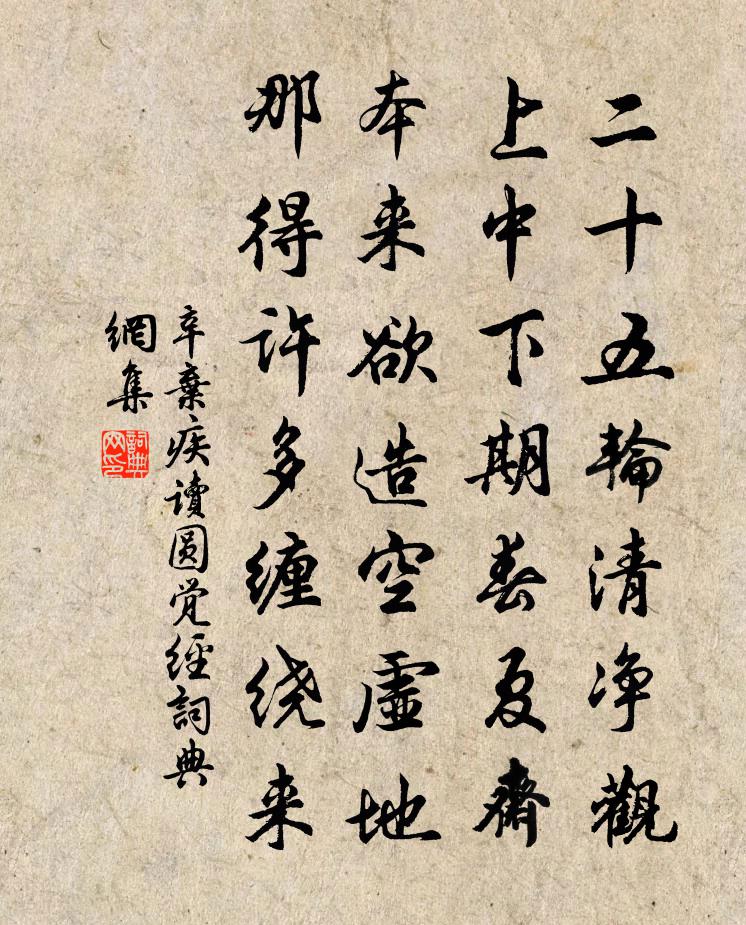 二十五輪清净觀
上中下期春夏齋
本来欲造空虛地
那得许多缠绕来
辛棄疾讀圆觉經詞典
網集
詞典
网印